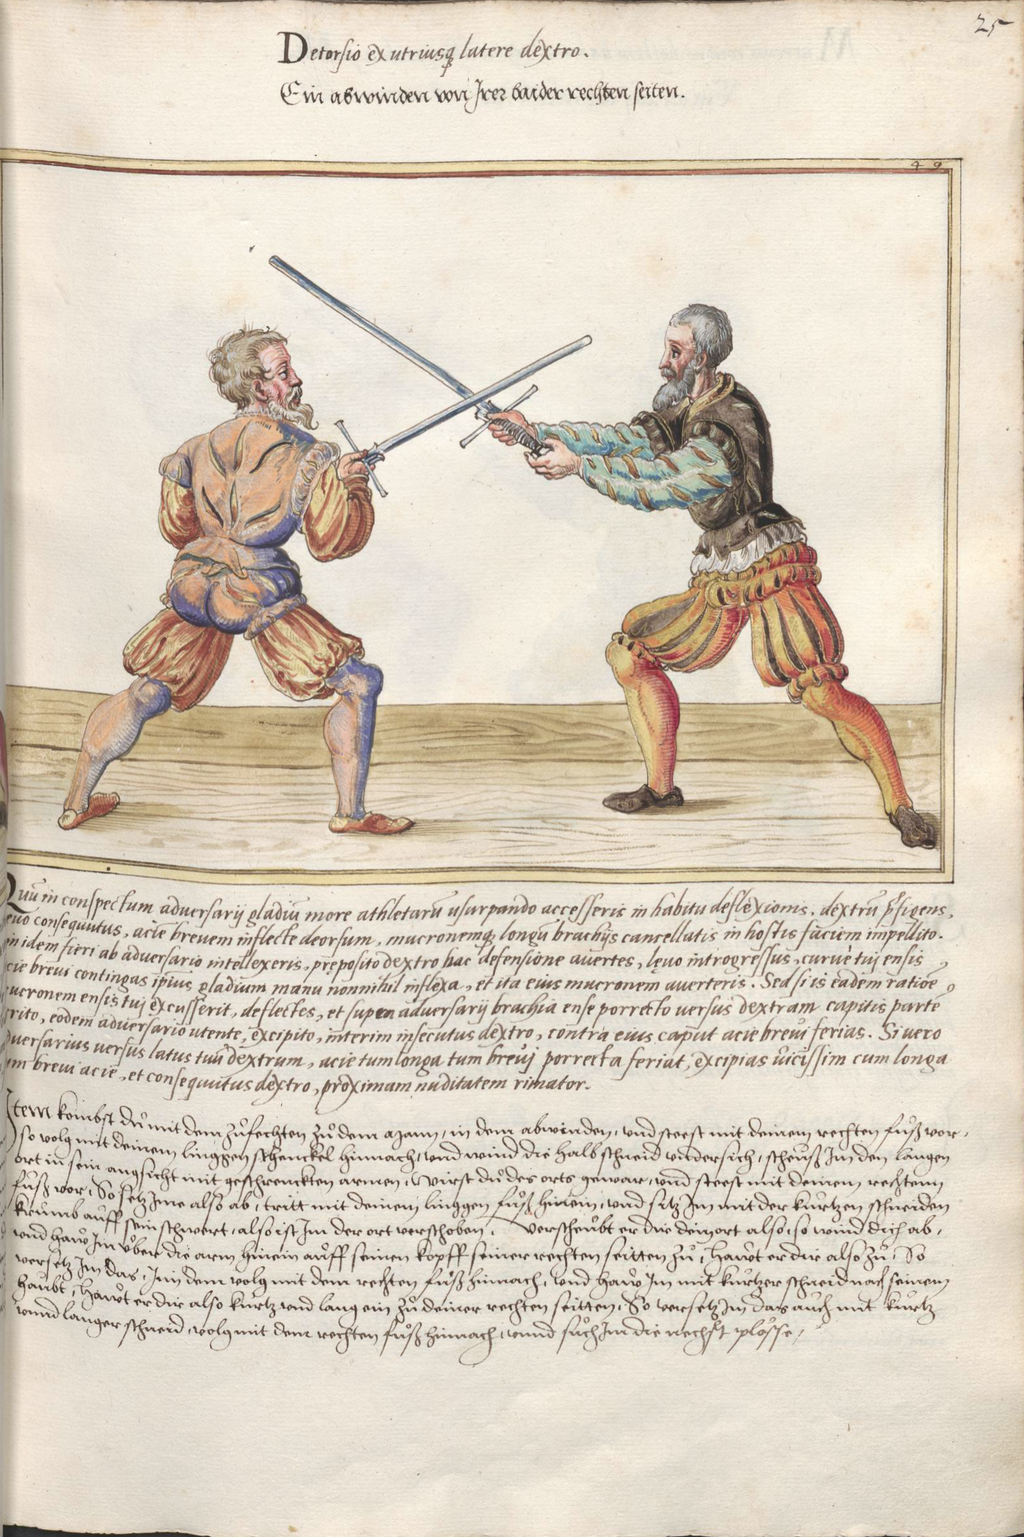 25
Detorsio ex utriusq latere dextro.
Ein abwinden von Irer baider rechten seiten.
49
Quũ in conspectum adversarij gladiũ more athletarũ usurpando accesseris in habitu deflexionis, dextrũ p̃figens,
consequutus, acie brevem inflecte deorsum, mucronemq longũ brachijs cancellatis in hostis faciem impellito.
idem fieri ab adversario intellexeris, preposito dextro hac defensione avertes, lęvo introgressus, curvę tuj ensis
brevi contingas ipius gladium manu nonnihil inflexa, et ita eius mucronem averteris. Sed si is eadem ratioe
mucronem ensis tuj excusserit, deflectes, et supera adversarij brachia ense porrecto versus dextram capitis parte
rito, eodem adversario utente, excipito, interim insecutus dextro, contra eius caput acie brevi ferias. Si vero
adversarius versus latus tuũ dextrum, acie tum longa tum brevj porrecta feriat, excipias vicissim cum longa
brevi acie, et consequutus dextro, proximam nuditatem rimator.
Item kombst dů mit dem zůfechten zů dem mann, in dem abwinden, und steest mit deinem rechten fůß vor,
so volg mit deinem linggen schenckel hinnach, und wind die halb schneid undersich, scheuß Im den langen
ort in sein angsicht mit geschrenckten armen, Wirst dů des orts gewar, und steest mit deinem rechten
fůß vor, So setz Ime also ab, tritt mit deinem linggen fůß hinein, und setz Im mit der kurtzen schneiden
krumb auff sein schwert, also ist Im der ort verschoben. Verscheubt er dir dein ort also, so wind dich ab,
und haw Im uber die arm hinein auff seinen kopff seiner rechten seitten zů, Hawt er dir also zů, So
versetz Im das, Inn dem volg mit dem rechten fůß hinnach, und haw Im mit kurtzer schneid nach seinem
haubt, Hawt er dir also kurtz und lang ein zů deiner rechten seitten, So versetz Im das auch mit kurtz
unnd langer schneid, volg mit dem rechten fůß hinnach, unnd sůch Im die nechst plosse,